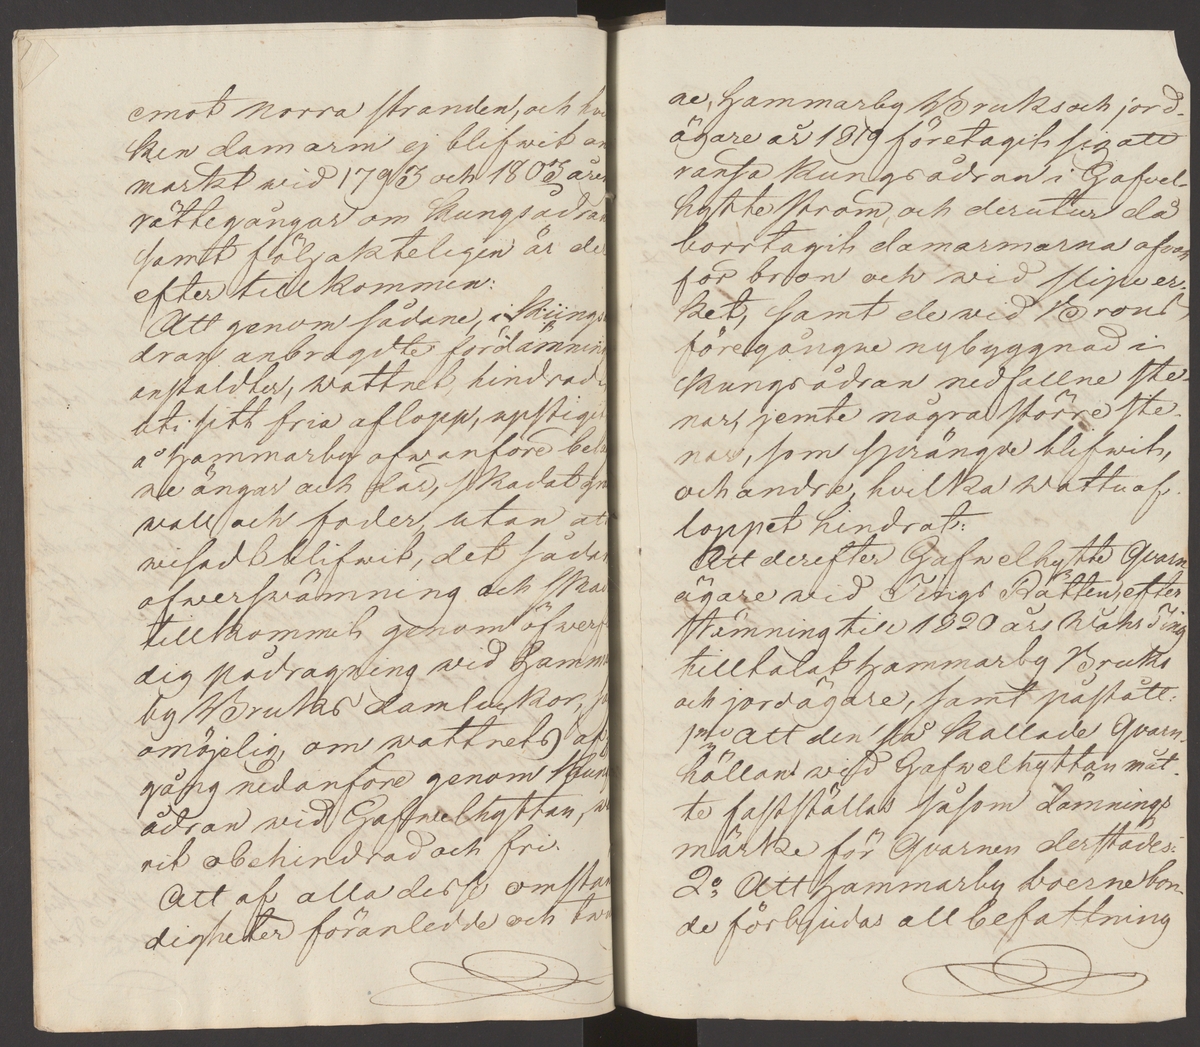 emot norra stranden, och hvil
ken damarm ej blifwit an
märkt wid 1793 och 1805 åres
rättegångar om Kungsådran
samt följakteligen är der
efter tillkommen:
Att genom sådane, i Kungså
dran anbragdte fördämning
anstaldter, wattnet, hindradt
uti sitt fria aflopp, upstigit
å Hammarby ofwanföre beläg
ne ängar och där, skadat gräs
wall och foder, utan att
wisadt blifwit, det sådan
öfwerswämning och skad
tillkommit genom öfwerflö
dig pådragning wid Hammar
by Bruks damluckor, så
omöjelig, om wattnets af
gång nedanföre genom Kungs
ådran wid Gafwelhyttan, wa
rit obehindrad och fri.
Att af alla desse omstän
digheter föranledde och twung
ne, Hammarby Bruks och jord-
ägare år 1819 företagit sig att
ransa Kungsådran i Gafvel-
hytte Ström, och derutur då
borrtagit damarmarna ofvan
för bron och wid slipver-
ket, samt de wid Brons
föregångne nybyggnad i
Kungsådran nedfallne ste-
nar, jemte några större ste-
nar, som sprängde blifwit,
och andre, hvilka wattuaf-
loppet hindrat:
Att derefter Gafwelhytte Qvarn
ägare wid Tings Rätten, efter
stämning till 1820 års Wåhr Ting
tilltalat Hammarby Bruks
och jordägare, samt påstått:
1mo Att den så kallade Qvarn-
hällan wid Gafwelhyttan måt-
te fastställas såsom dämnings
märke för Qvarnen derstädes:
2o Att Hammarby boerne bon-
de förbjudas all befattning